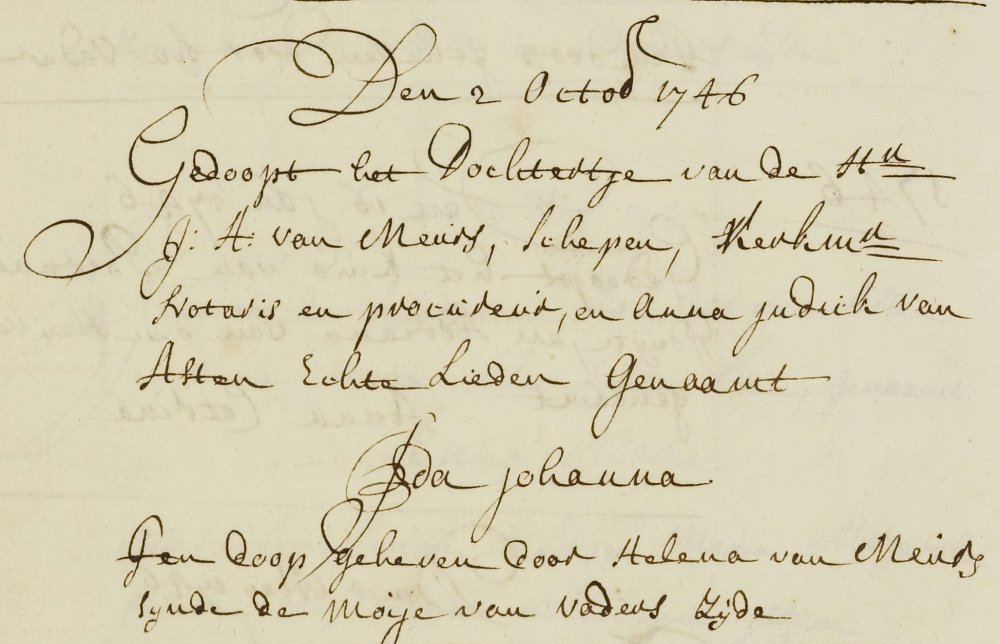 Den 2 Octob 1746
Gedoopt het Dochtertje van de Hr
J: A: van Meurs, Schepen, Kerkmr
Notaris en procureur, en Anna Judick van
Asten Echte Lieden Genaamt
Ida Johanna
Ten doop geheven door Helena van Meurs
synde de Moije van vaders Zijde